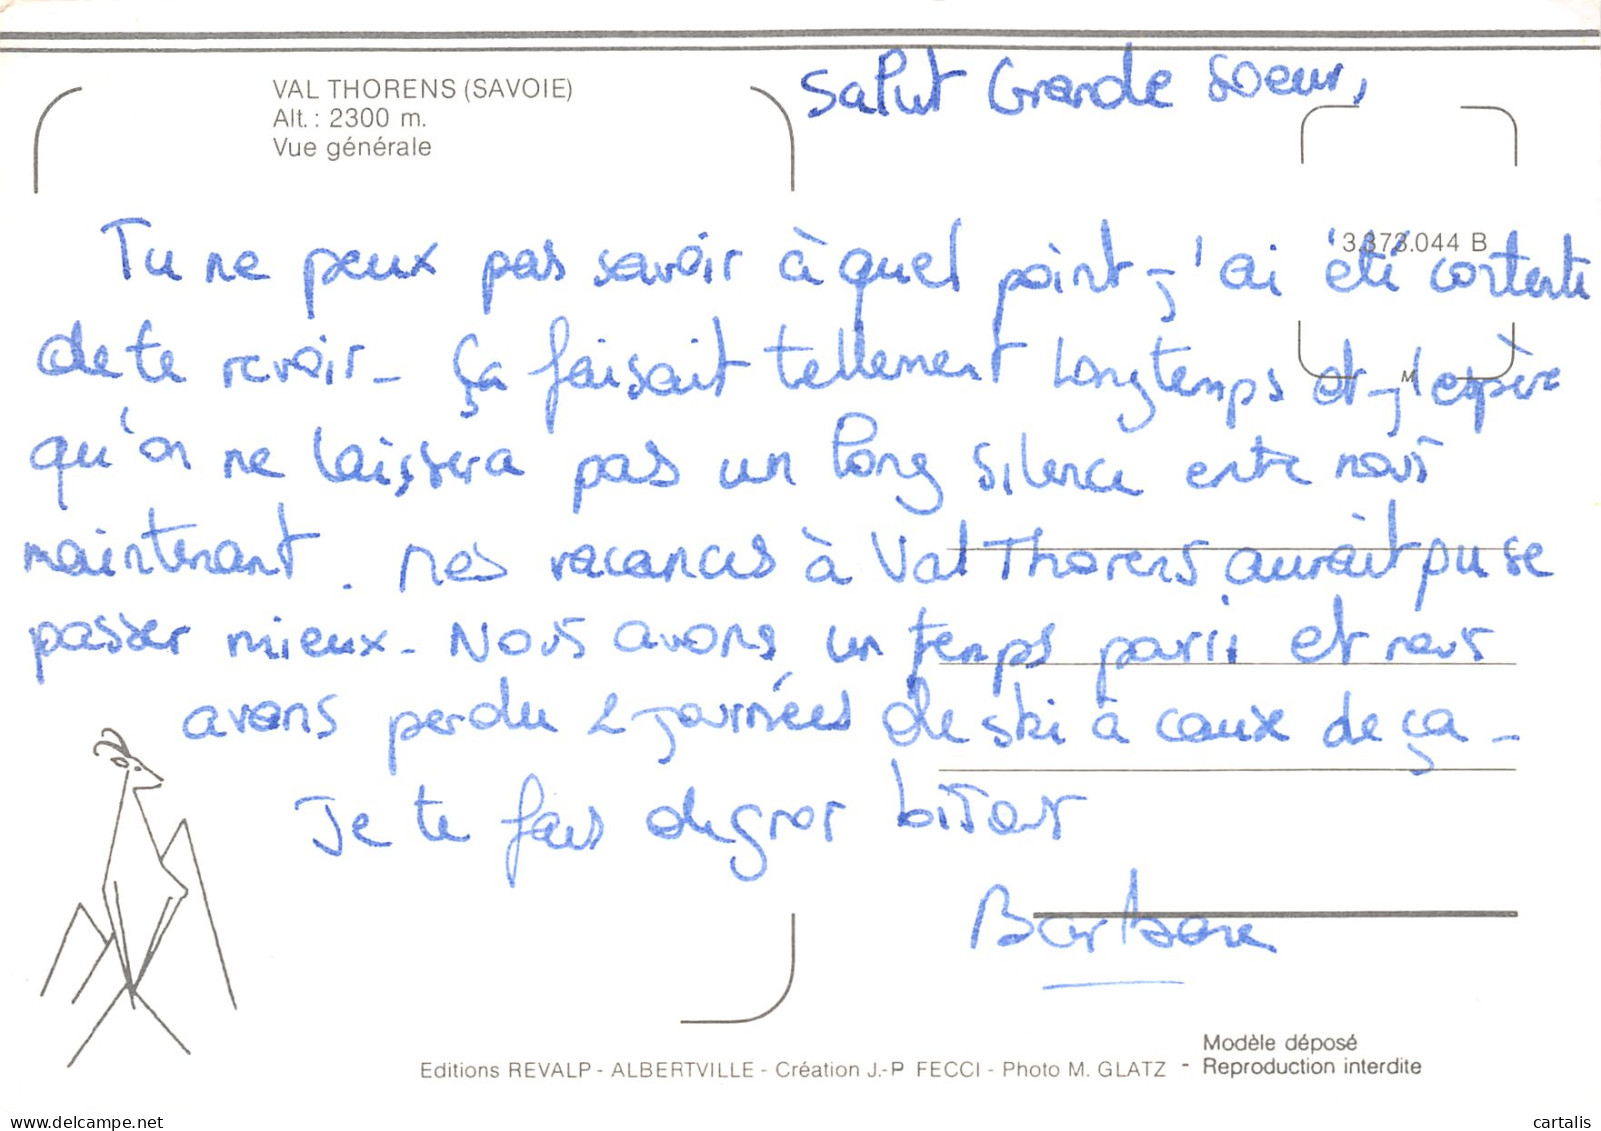 VAL THORENS (SAVOIE)
Alt. : 2300 m.
Vue générale
Salut Grande Soeur,
3.373.044 B
Tu ne peux pas savoir à quel point j'ai été contente
de te revoir - ça faisait tellement longtemps et j'espère
M
qu'on ne laissera pas un long silence entre nous
maintenant. Mes vacances à Val Thorens aurait pu se
passer mieux - Nous avons un temps pourri et nous
avons perdu 2 journées de ski à caux de ça -
Je te fais de gros
Barbara
Editions REVALP - ALBERTVILLE - Création J.-P FECCI - Photo M. GLATZ -
Modèle déposé
Reproduction interdite
cartalis
www.delcampe.net